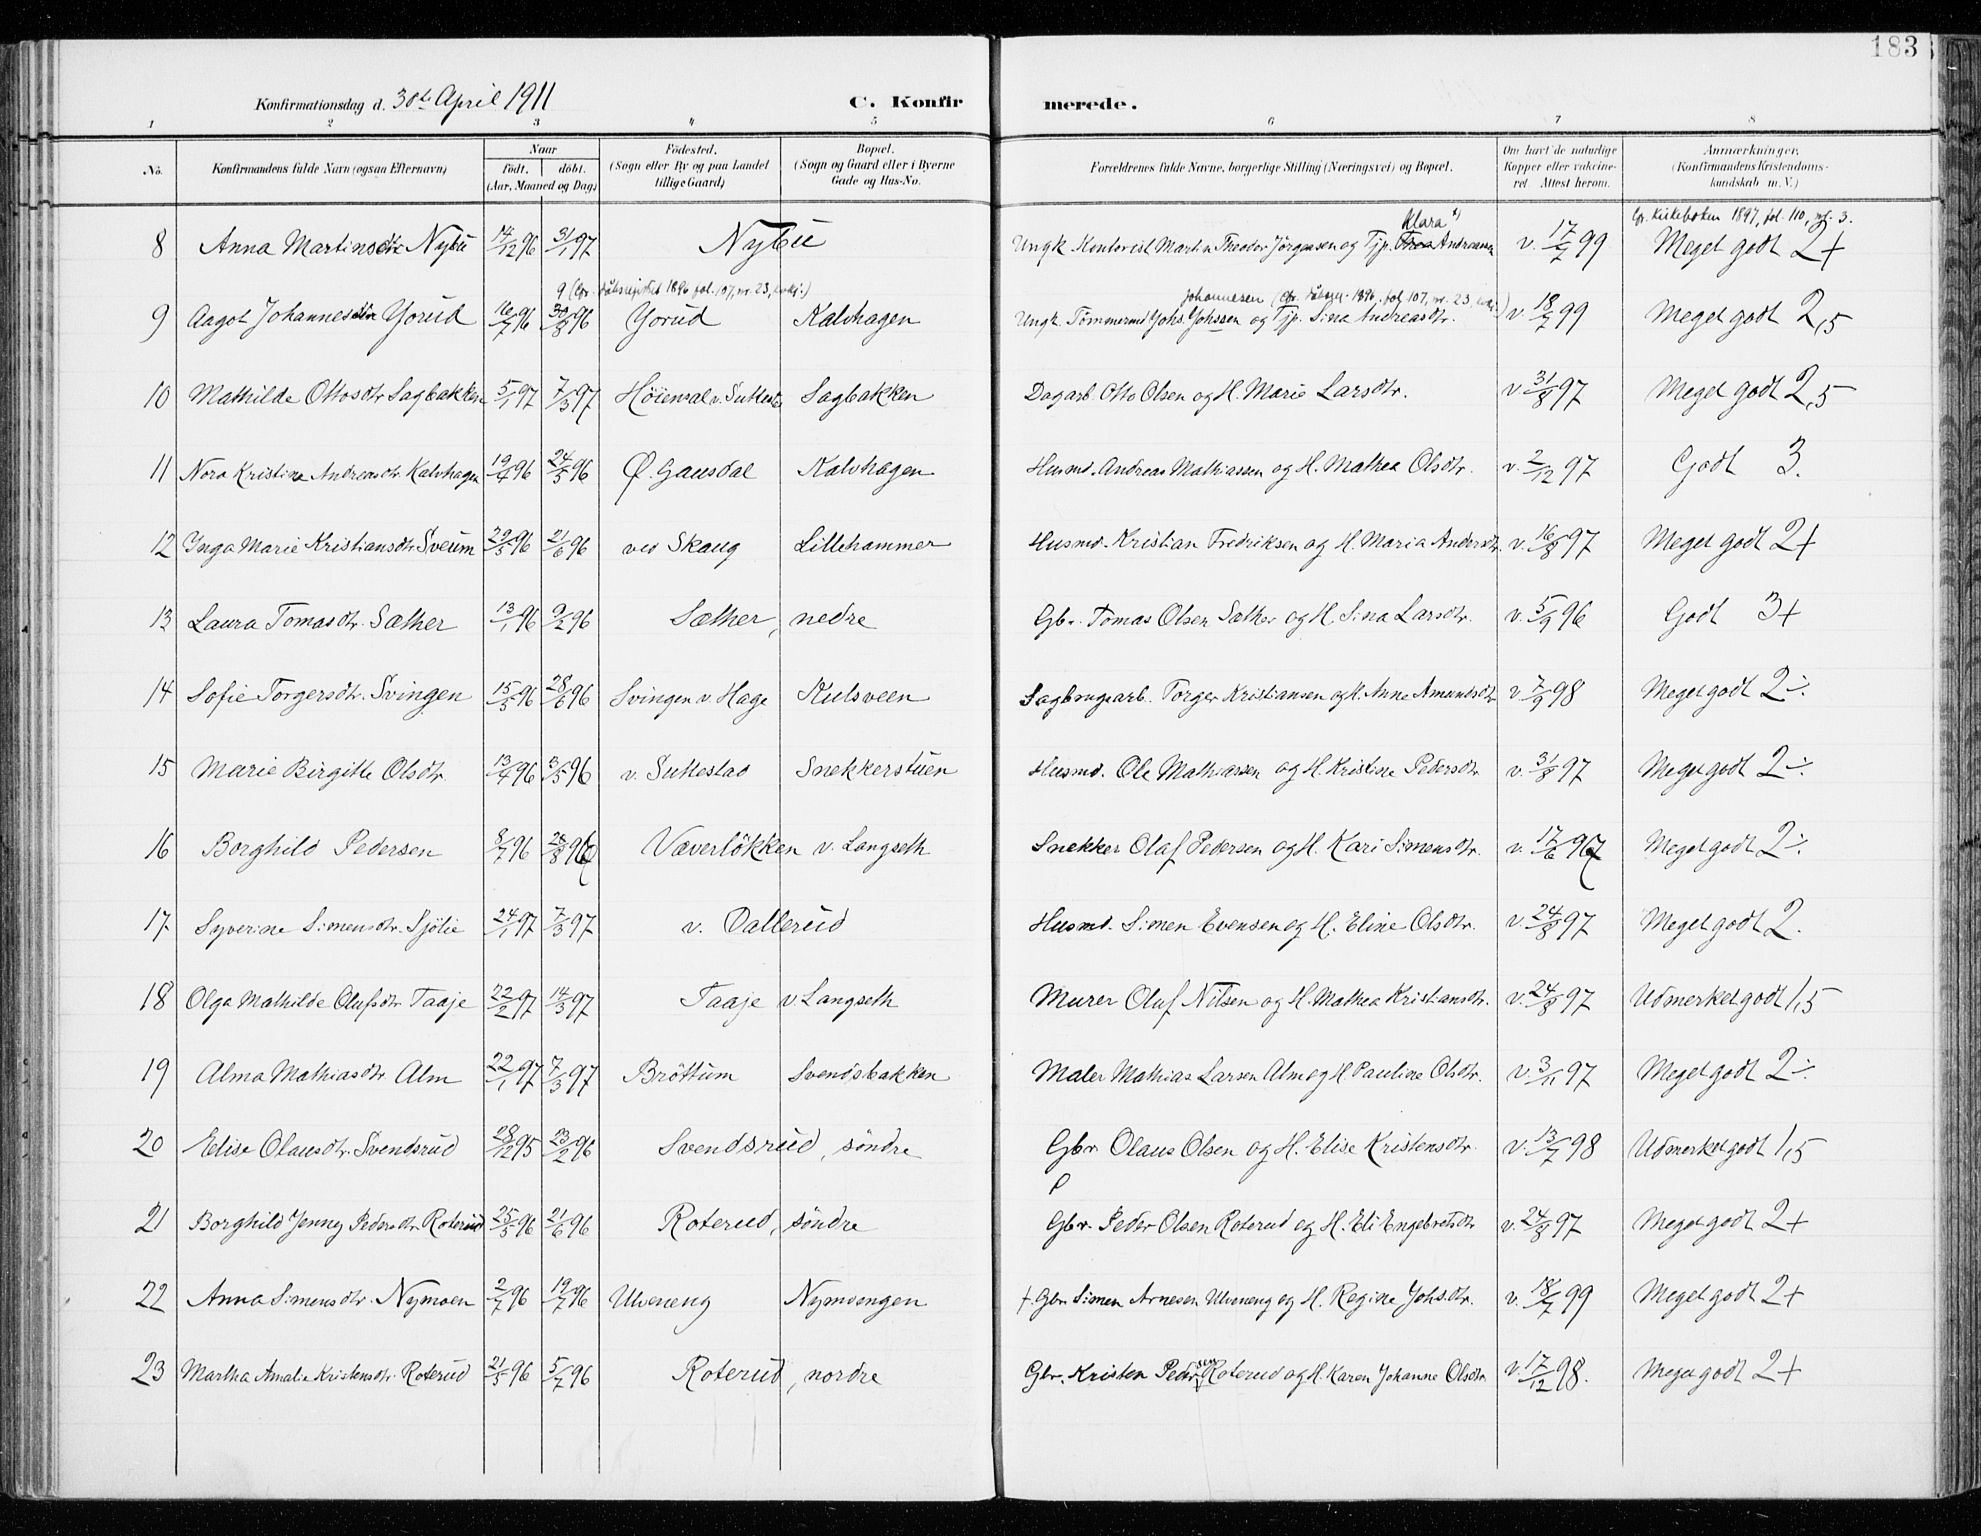 183
Konfirmationsdag d. 30te April 1911 C. Konfirmerede.
1 2 3 4 5 6 7 8
No. Konfirmandens fulde Navn (ogsaa Efternavn) Naar født. døbt. (Aar, Maaned og Dag) Fødested. (Sogn eller By og paa Landet tillige Gaard) Bopæl. (Sogn og Gaard eller i Byerne Gade og Hus-No. Forældrenes fulde Navne, borgerlige Stilling (Næringsvei) og Bopæl. Om havt de naturlige Kopper eller vaccineret Attest herom. Anmærkninger. (Konfirmandens Kristendomskundskab m. V.)
Klara *) Cfr. Kirkeboken 1897, fol. 110, nr. 3.
8 Anna Martinsdtr Nybu 14/12 96 31/1 97 Nybu Ungk. Kontorist Martin Theodor Jörgensen og Tjp. Thea Andreasen v. 17/7 99 Meget godt 2+
9 (Cfr. dåbsregistret 1896 fol. 107, nr. 23, kvkj.) Johannesen (Cfr. dåbsreg. 1896, fol. 107, nr. 23, kvkj.)
9 Aagot Johannesdtr Jorud 16/7 96 30/8 96 Jorud Kalvhagen Ungk. Tömmermd Johs. Johssen og Tjp. Sina Andreasdtr. v. 18/7 99 Meget godt 2,5
10 Mathilde Ottosdtr Sagbakken 5/1 97 7/3 97 Höiensal v. Suttestad Sagbakken Dagarb. Otto Olsen og H. Marie Larsdtr. v. 31/8 97 Meget godt 2,5
11 Nora Kristine Andreasdtr. Kalvhagen 19/4 96 24/5 96 Ø. Gausdal Kalvhagen Husmd. Andreas Mathiassen og H. Mathea Olsdtr. v. 2/12 97 Godt 3.
12 Inga Marie Kristiansdtr. Sveum 29/5 96 21/6 96 ved Skaug Lillehammer Husmd. Kristian Fredriksen og H. Maria Andersdtr. v. 16/8 97 Meget godt 2+
13 Laura Tomasdtr. Sæther 13/1 96 9/2 96 Sæther, nedre Gbr. Tomas Olsen Sæther og H. Sina Larsdtr. v. 5/9 96 Godt 3+
14 Sofie Torgersdtr. Svingen 15/5 96 28/6 96 Svingen v. Hage Kulsveen Sagbrugsarb. Torger Kristiansen og H. Anne Amundsdtr v. 7/9 98 Meget godt 2÷.
15 Marie Birgitte Olsdtr. 13/4 96 3/5 96 v. Suttestad Snekkerstuen Husmd. Ole Mathiassen og H. Kristine Pedersdtr. v. 31/8 97 Meget godt 2÷.
16 Borghild Pedersen 8/7 96 28/8 96 Væverlökken v. Langseth Snekker Olaf Pedersen og H. Kari Simensdtr. v. 17/6 97 Meget godt 2÷.
17 Syverine Simensdtr. Sjölie 24/1 97 7/3 97 v. Dallerud Husmd. Simen Evensen og H. Eline Olsdtr. v. 24/8 97 Meget godt 2.
18 Olga Mathilde Olufsdtr Taaje 22/2 97 14/3 97 Taaje v. Langseth Murer Oluf Nilsen og H. Mathea Kristiansdtr. v. 24/8 97 Udmerket godt 1,5
19 Alma Mathiasdtr. Alm 22/1 97 7/3 97 Bröttum Svendsbakken Maler Mathias Larsen Alm og H. Pauline Olsdtr. v. 3/11 97 Meget godt 2÷.
20 Elise Olausdtr. Svendsrud 28/12 95 23/2 96 Svendsrud, söndre Gbr Olaus Olsen og H. Elise Kristensdtr. v. 13/7 98 Udmerket godt 1,5
21 Borghild Jenny Pedersdtr Roterud 25/5 96 21/6 96 Roterud, söndre Gbr. Peder Olsen Roterud og H. Eli Engebretsdtr v. 24/8 97 Meget godt 2+
22 Anna Simensdtr. Nymoen 2/7 96 19/7 96 Ulveneng Nymoengen †. Gbr. Simen Arnesen Ulveneng og H. Regine Johs.dtr. v. 18/7 99 Meget godt 2+
23 Martha Amalie Kristensdtr. Roterud 21/5 96 5/7 96 Roterud, nordre Gbr. Kristen Pedersen Roterud og H. Karen Johanne Olsdtr v. 17/12 98. Meget godt 2+